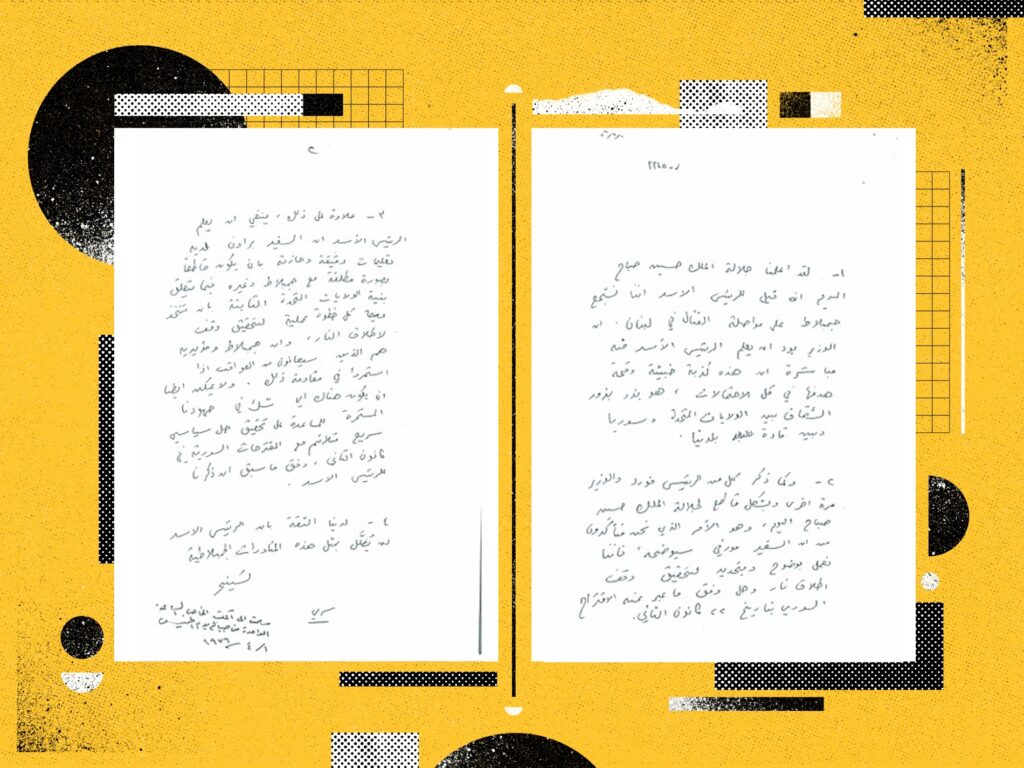 ر - ٢٢٤٥
١- لقد اعلمنا جلالة الملك حسين صباح
اليوم انه قيل للرئيس الاسد اننا نشجع
جمبلاط على مواصلة القتال في لبنان. ان
الوزير يود ان يعلم الرئيس الأسد منه
مباشرة ان هذه كذبة خبيثة وقحة
هدفها في كل الاحتمالات، هو بذر بذور
الشقاق بين الولايات المتحدة وسوريا
وبين قادة بلدينا.
٢- وكما ذكر كل من الرئيس فورد والوزير
مرة اخرى وبشكل قاطع لجلالة الملك حسين
صباح اليوم، وهو الأمر الذي نحن متأكدون
من ان السفير مورفي سيوضحه، فاننا
نعمل بوضوح وبتحديد لتحقيق وقف
اطلاق نار وحل وفق ما عبر عنه الاقتراح
السوري بتاريخ ٢٢ كانون الثاني.
٢
٣- علاوة على ذلك، ينبغي ان يعلم
الرئيس الأسد ان السفير براون لديه
تعليمات دقيقة وحازمة بان يكون قاطعا
بصورة مطلقة مع جمبلاط وغيره فيما يتعلق
بنية الولايات المتحدة الثابتة بان تتخذ
كل خطوة عملية لتحقيق وقف
لاطلاق النار، وان جمبلاط ومؤيديه
هم الذين سيعانون من العواقب اذا
استمروا في مقاومة ذلك. ولا يمكن ايضا
ان يكون هناك اي شك في جهودنا
المستمرة للمساعدة على تحقيق حل سياسي
سريع متلائم مع المقترحات السورية في
كانون الثاني، وفق ما سبق ان ذكرنا
للرئيس الاسد.
٤- لدينا الثقة بان الرئيس الاسد
لن يُضلَّل بمثل هذه المناورات الجمبلاطية
كيسنجر
سري
الواحدة من صباح يوم الخميس
١ / ٤ / ١٩٧٦